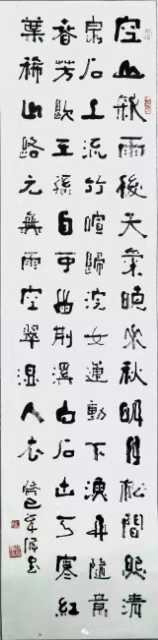 空山新雨後天氣晚來秋明月松間照清
泉石上流竹喧歸浣女蓮動下漁舟隨意
春芳歇王孫自可留荊溪白石出天寒紅
葉稀山路元無雨空翠濕人衣